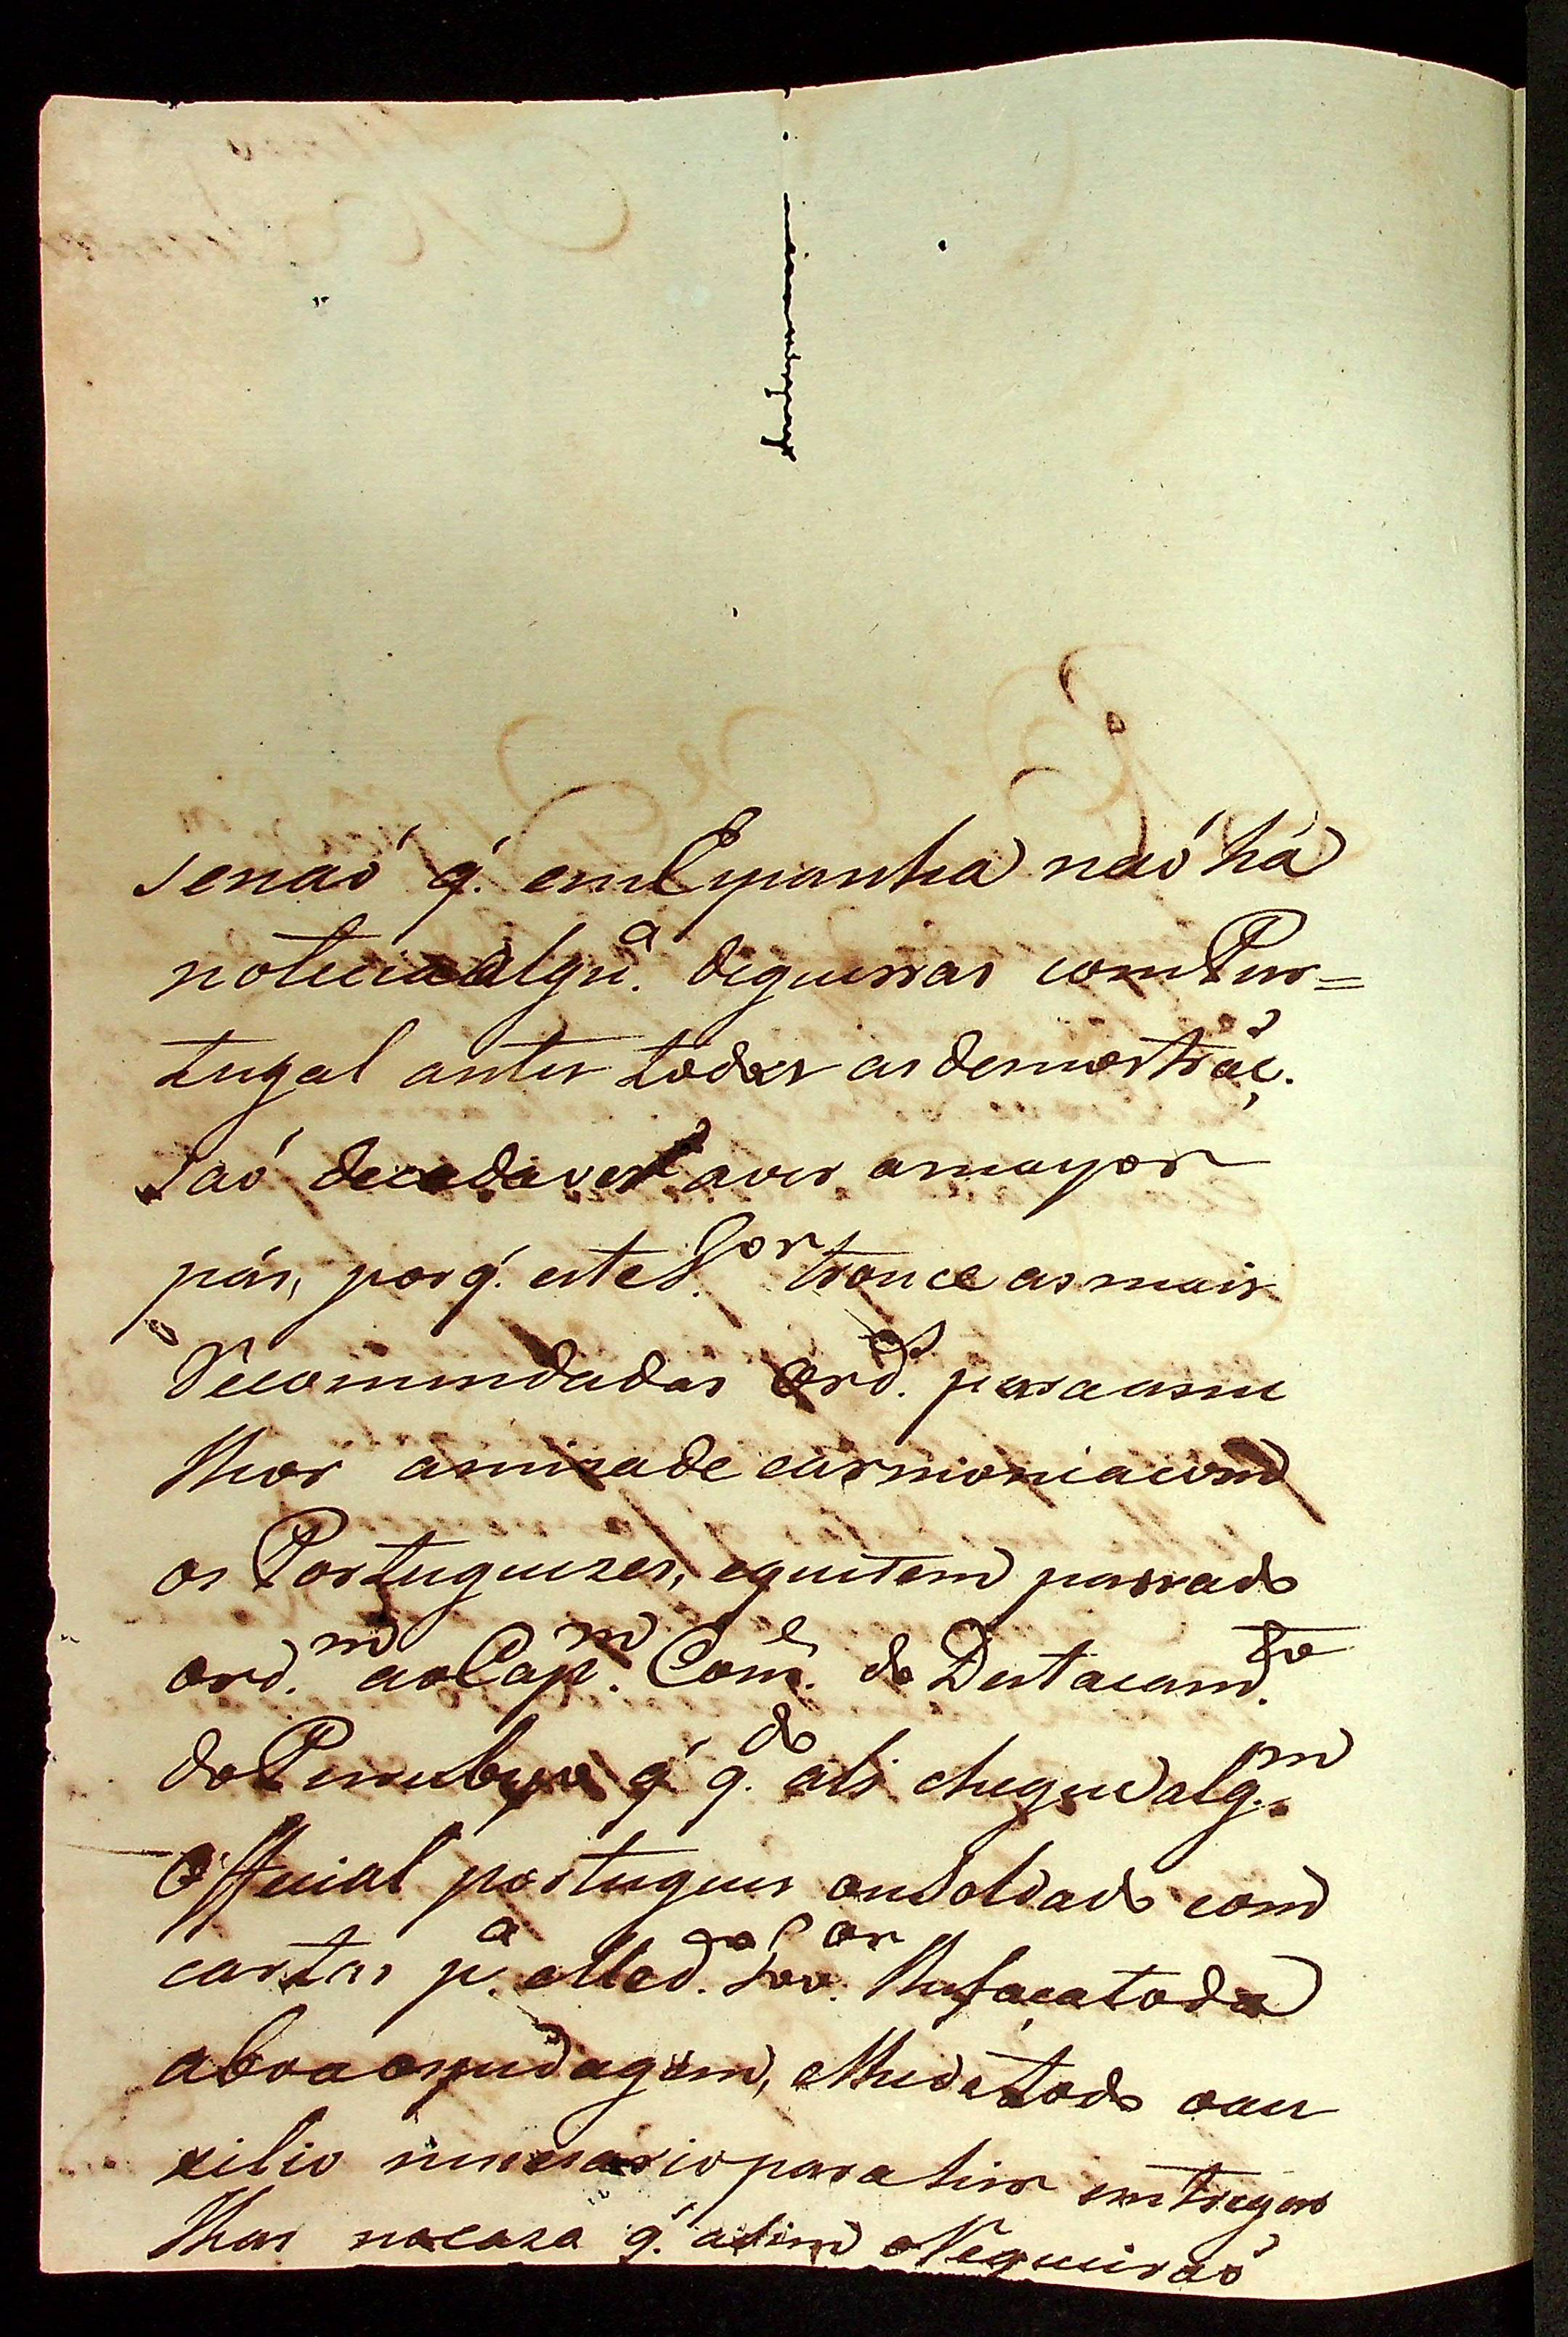 senaó q. emEspanha naó há
noticiaalgũ.ᵃ deguerras comPor=
tugal antes todas asdemostrãç.
saó decadaves aver amayor
pás, porq. esteS.ᵒʳ trouce asmais
Recomendadas ord.ˢ paraasme
lhor amizade earmoniacom
os Portuguezes, equetem passado
ord.ᵐ aoCap.ᵐ Com.ᵉ do Destacam.ᵗᵒ
do q q.ᵈᵒ ali chegue alg.ᵐ
Official portugues ouSoldado com
cartas p.ᵃ elled. lhefaçatoda
aboaospedagem, elhedetodo oau
xilio necessarioparahir entregar
lhas nacaza q. asim oRequeiraó